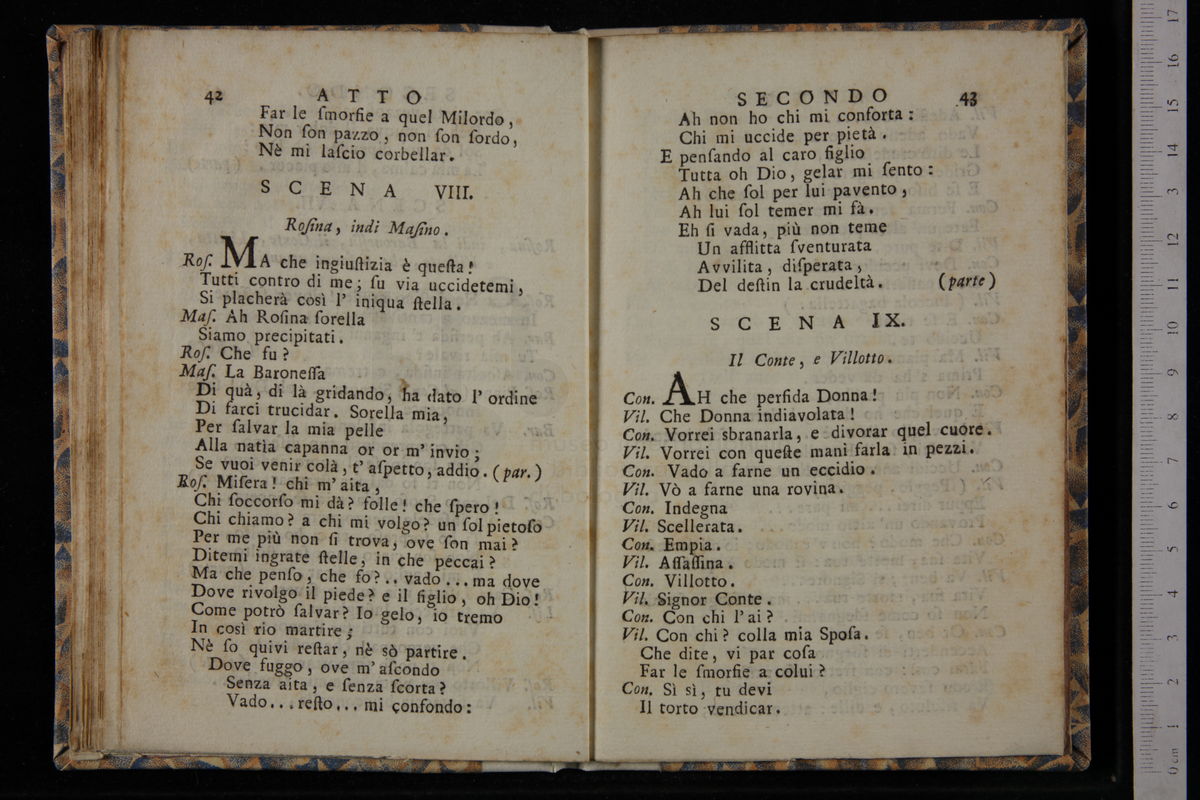 42 ATTO
Far le ſmorfie a quel Milordo,
Non ſon pazzo, non ſon ſordo,
Nè mi laſcio corbellar.
SCENA VIII.
Roſina, indi Maſino.
Roſ. MA che ingiuſtizia è queſta!
Tutti contro di me; ſu via uccidetemi,
Si placherà così l' iniqua ſtella.
Maſ. Ah Roſina ſorella
Siamo precipitati.
Roſ. Che fu?
Maſ. La Baroneſſa
Di quà, di là gridando, ha dato l' ordine
Di farci trucidar. Sorella mia,
Per ſalvar la mia pelle
Alla natìa capanna or or m' invio;
Se vuoi venir colà, t' aſpetto, addio. (par.)
Roſ. Miſera! chi m' aita,
Chi ſoccorſo mi dà? folle! che ſpero!
Chi chiamo? a chi mi volgo? un ſol pietoſo
Per me più non ſi trova, ove ſon mai?
Ditemi ingrate ſtelle, in che peccai?
Ma che penſo, che fo?.. vado... ma dove
Dove rivolgo il piede? e il figlio, oh Dio!
Come potrò ſalvar? Io gelo, io tremo
In così rio martire;
Nè ſo quivi reſtar, nè sò partire.
Dove fuggo, ove m' aſcondo
Senza aita, e ſenza ſcorta?
Vado... reſto... mi confondo:
SECONDO 43
Ah non ho chi mi conforta:
Chi mi uccide per pietà.
E penſando al caro figlio
Tutta oh Dio, gelar mi ſento:
Ah che ſol per lui pavento,
Ah lui ſol temer mi fà.
Eh ſi vada, più non teme
Un afflitta ſventurata
Avvilita, diſperata,
Del deſtin la crudeltà. (parte)
SCENA IX.
Il Conte, e Villotto.
Con. AH che perfida Donna!
Vil. Che Donna indiavolata!
Con. Vorrei sbranarla, e divorar quel cuore.
Vil. Vorrei con queſte mani farla in pezzi.
Con. Vado a farne un eccidio.
Vil. Vò a farne una rovina.
Con. Indegna
Vil. Scellerata.
Con. Empia.
Vil. Aſſaſſina.
Con. Villotto.
Vil. Signor Conte.
Con. Con chi l' ai?
Vil. Con chi? colla mia Spoſa.
Che dite, vi par coſa
Far le ſmorfie a colui?
Con. Sì sì, tu devi
Il torto vendicar.
0 cm 1 2 3 4 5 6 7 8 9 10 11 12 13 14 15 16 17